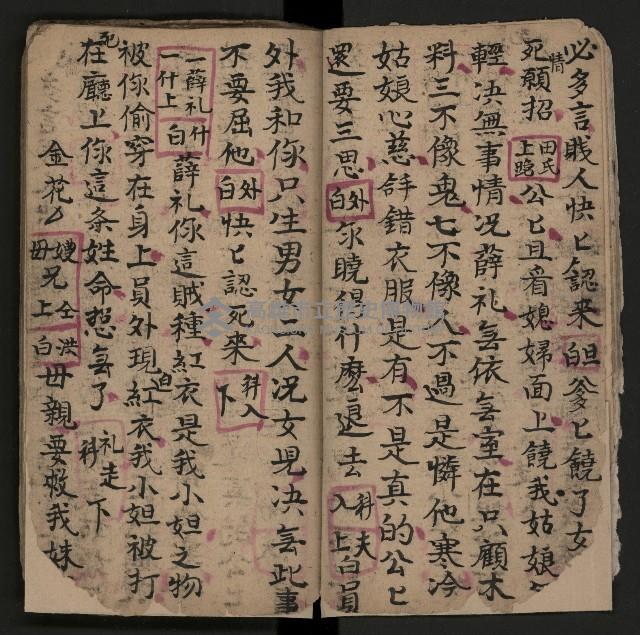 必多言賎人快匕認来 白旦 爹匕饒了女
情死願招 田氏上跪 公匕且看媳婦面上饒我姑娘
輕决無事情况薛礼無依無室在只顧木
料三不像鬼七不像人不過是憐他寒冷
姑娘心慈舒錯衣服是有不是真的公匕
還要三思 外白 尔曉得什麽退去 科夫入上白 員
外我和你只生男女二人况女児决無此事
不要屈他 外白 快匕認死来 科入下
一薛礼什一什上白 薛礼你這賊種紅衣是我小妲之物
被你偷穿在身上員外現迫紅衣我小妲被打
死在廳上你這条姓命想無了 礼走科下
金花 嫂兄仝洪毋上白 毋親要救我妹
高雄市立歷史博物館